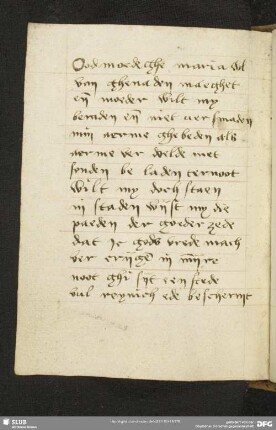 Oodmoedeghe maria vol
van ghenaden maeghet
eñ moeder wilt my
beraden eñ niet versmaden
min aerme ghebeden als
aerme ver vvlde met
sonden be laden ter noot
wilt my doch staen
in staden wijst my die
paeden der goeder zede
dat ic gods vrede mach
ver crijgē in mijre
noot ghi sijt een
vol reynicheede bescermt
SLUB
DFG